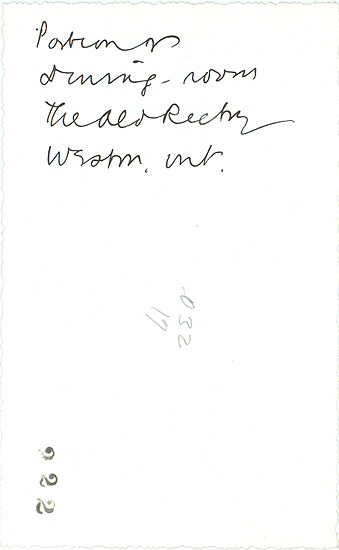 Portion of
dining-room
The Old Rectory
Weston, Ont.
032
19
922